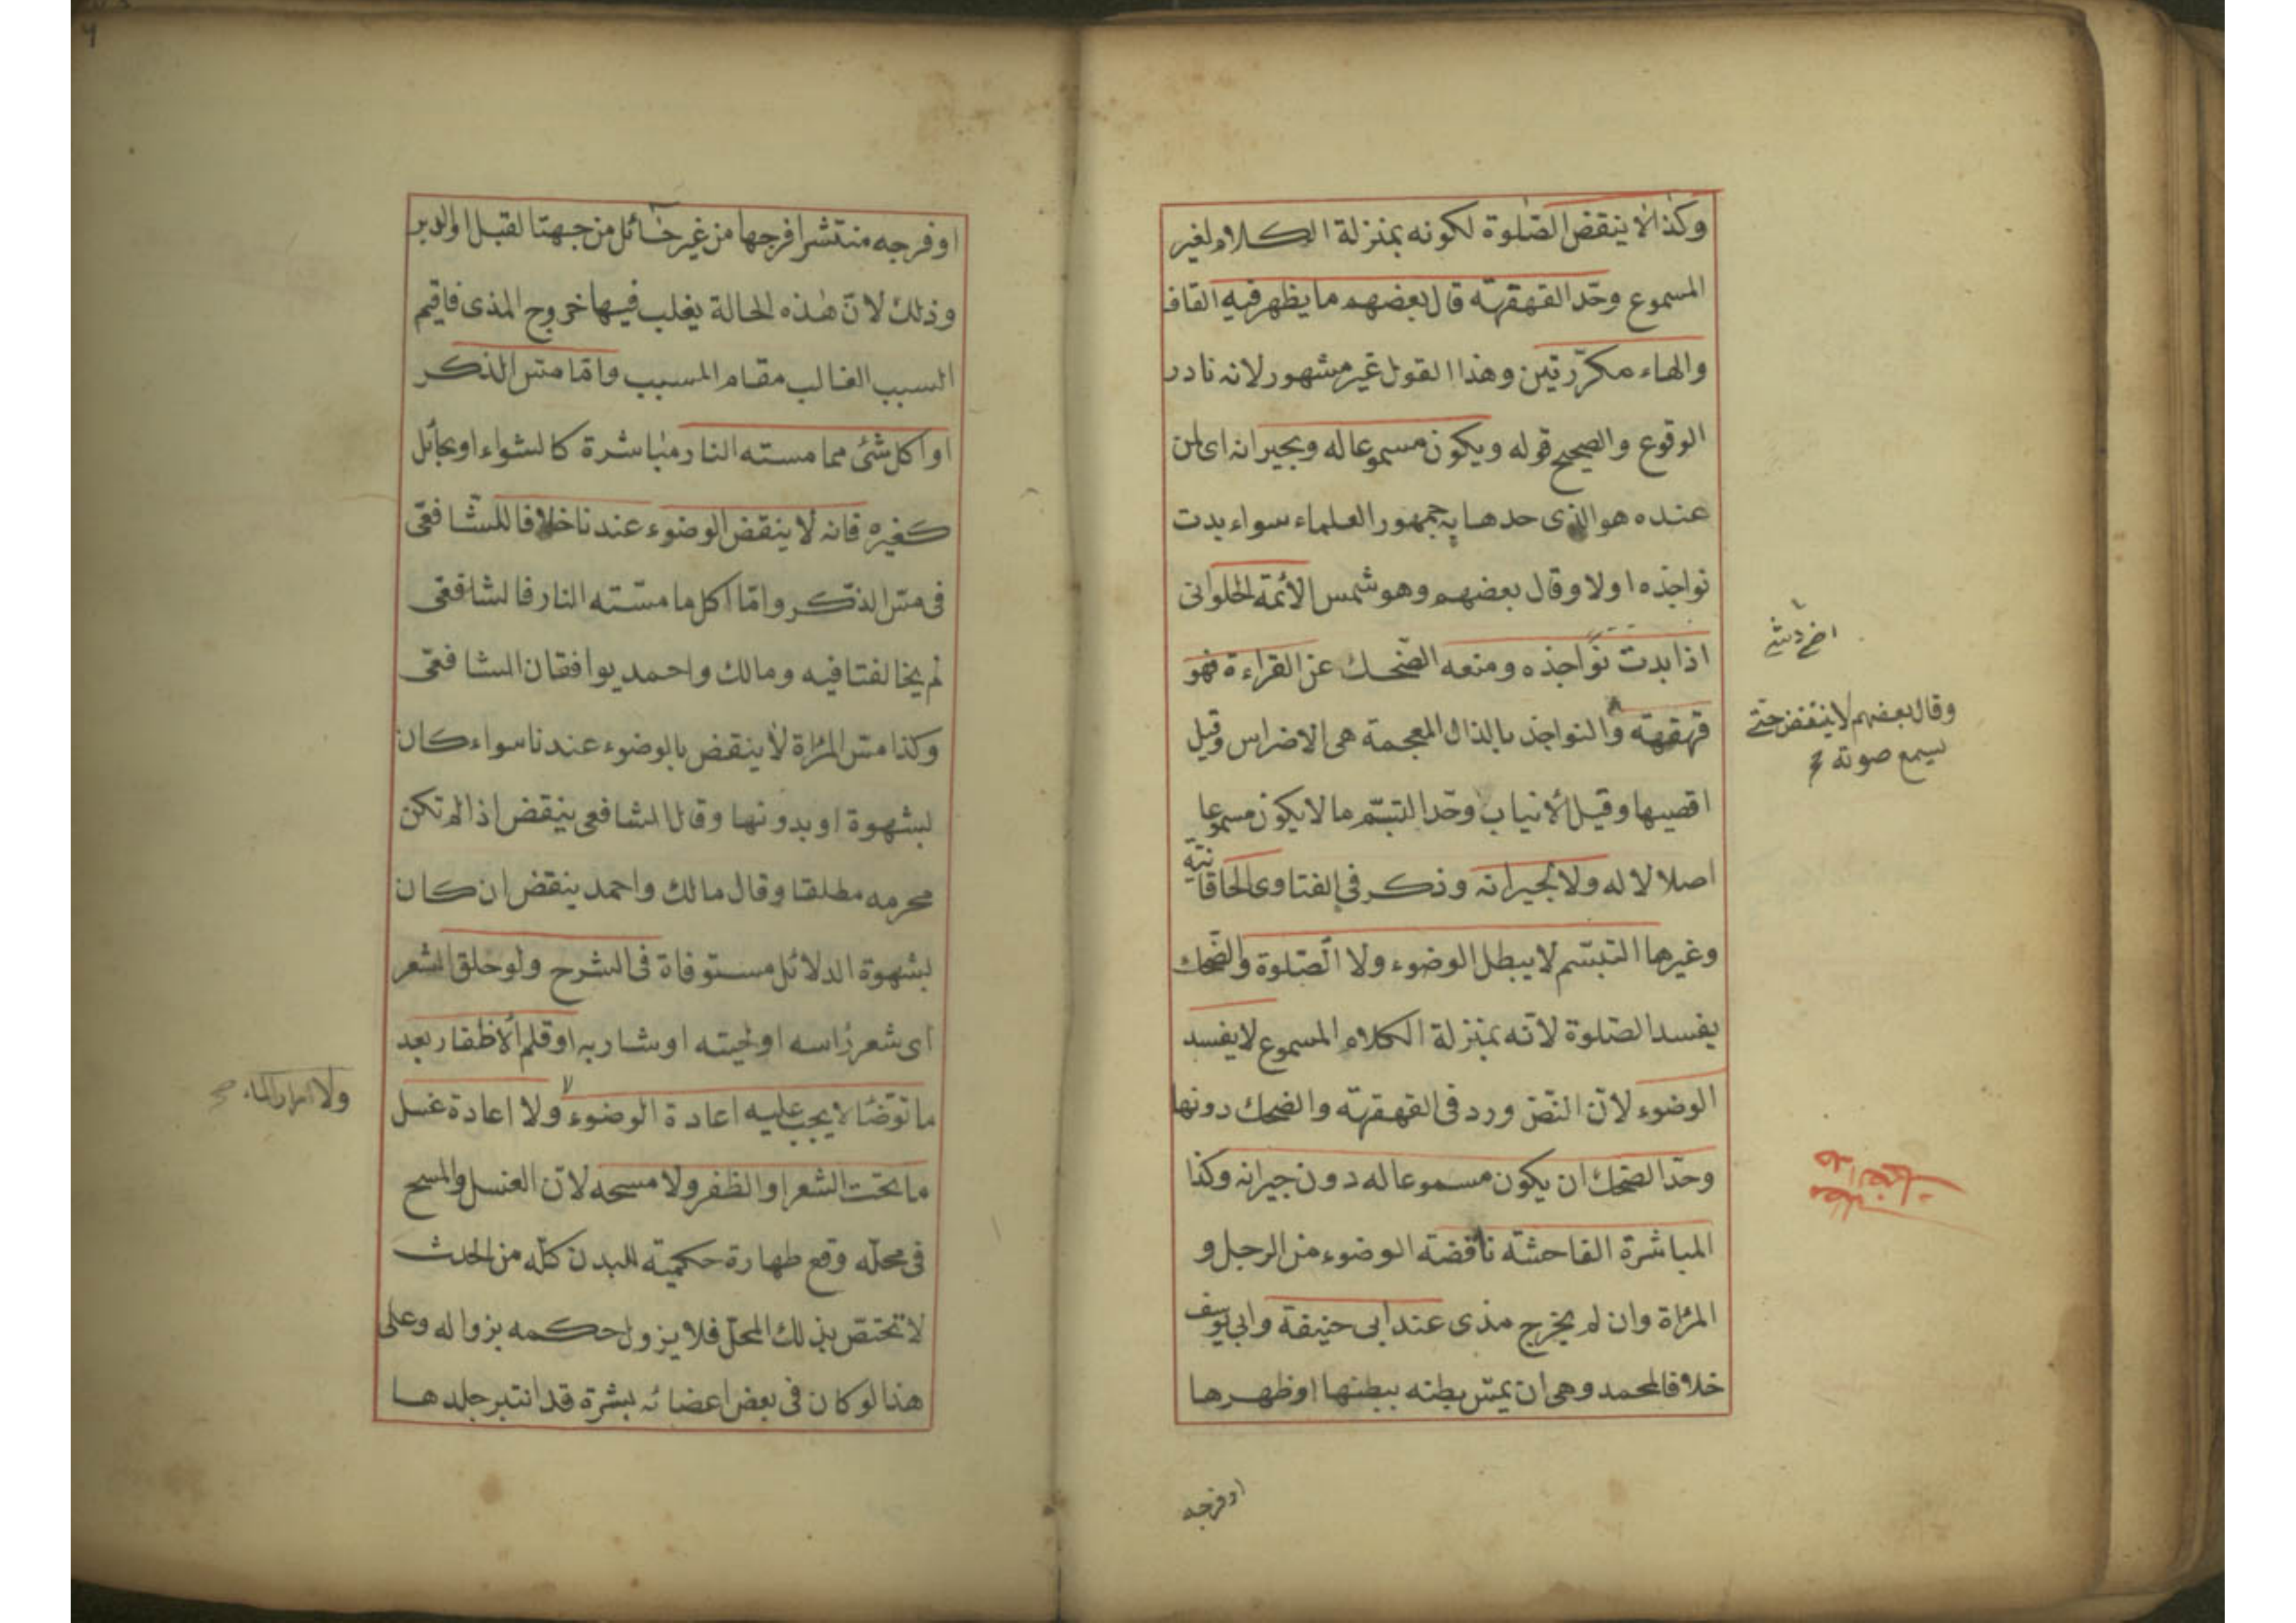 وكذا لا ينقض الصلوة لكونه بمنزلة الكلام لغير
المسموع وحد القهقهة قال بعضهم ما يظهر فيه القاف
والهاء مكررتين وهذا القول غير مشهور لانه نادر
الوقوع والصحيح قوله ويكون مسموعا له وبجيرانه اى لمن
عنده هو الذى حدها به جمهور العلماء سواء بدت
نواجذه اولا وقال بعضهم وهو شمس الأئمة الحلوانى
اذا بدت نواجذه ومنعه الضحك عن القراءة فهو
قهقهة والنواجذ بالذال المعجمة هى الاضراس وقيل
اقصيها وقيل الأنياب وحد التبسم ما لا يكون مسموعا
اصلا لا له ولا لجيرانه وذكر فى الفتاوى الخاقانية
وغيرها التبسم لا يبطل الوضوء ولا الصلوة والضحك
يفسد الصلوة لأنه بمنزلة الكلام المسموع لا يفسد
الوضوء لان النص ورد فى القهقهة والضحك دونها
وحد الضحك ان يكون مسموعا له دون جيرانه وكذا
المباشرة الفاحشة ناقضة الوضوء من الرجل و
المرأة وان لم يخرج مذى عند ابى حنيفة وابى يوسف
خلافا لمحمد وهى ان يمس بطنه ببطنها او ظهرها
وقال بعضهم لا ينقض حتى
يسمع صوته
او فرجه
او فرجه منتشرا فرجها من غير حائل من جهة القبل او الدبر
وذلك لانّ هذه الحالة يغلب فيها خروج المذى فاقيم
السبب الغالب مقام المسبب وامّا مسّ الذكر
او اكل شئ مما مسته النار مباشرة كالشواء او بحائل
كغيره فانه لا ينقض الوضوء عندنا خلافا للشافعى
فى مسّ الذكر وامّا اكل ما مسّته النار فالشافعى
لم يخالفنا فيه ومالك واحمد يوافقان الشافعى
وكذا مسّ المرأة لا ينقض بالوضوء عندنا سواء كان
بشهوة او بدونها وقال الشافعى ينقض اذا لم تكن
محرمه مطلقا وقال مالك واحمد ينقض ان كان
بشهوة الدلائل مستوفاة فى الشرح ولو حلق الشعر
اى شعر رأسه او لحيته او شاربه او قلم الأظفار بعد
ما توضأ لا يجب عليه اعادة الوضوء ولا اعادة غسل
ما تحت الشعر او الظفر ولا مسحه لانّ الغسل والمسح
فى محلّه وقع طهارة حكمية للبدن كلّه من الحدث
لا تختص بذلك المحلّ فلا يزول حكمه بزواله وعلى
هذا لو كان فى بعض اعضائه بشرة قد انتبر جلدها
ولا امرار الماء صح